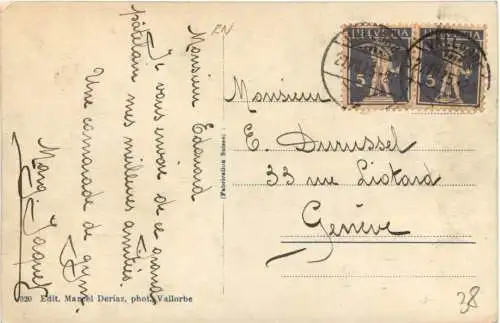 Monsieur Edouard
Je vous envoie de ce grand
patelain mes meilleures amitiés.
Une camarade de gym.
Marg. Jaquet
RN
Monsieur
E. Durussel
33 rue Liotard
Genève
HELVETIA
5
HELVETIA
5
(Fabrication Suisse)
920 Edit. Marcel Deriaz, phot. Vallorbe
38